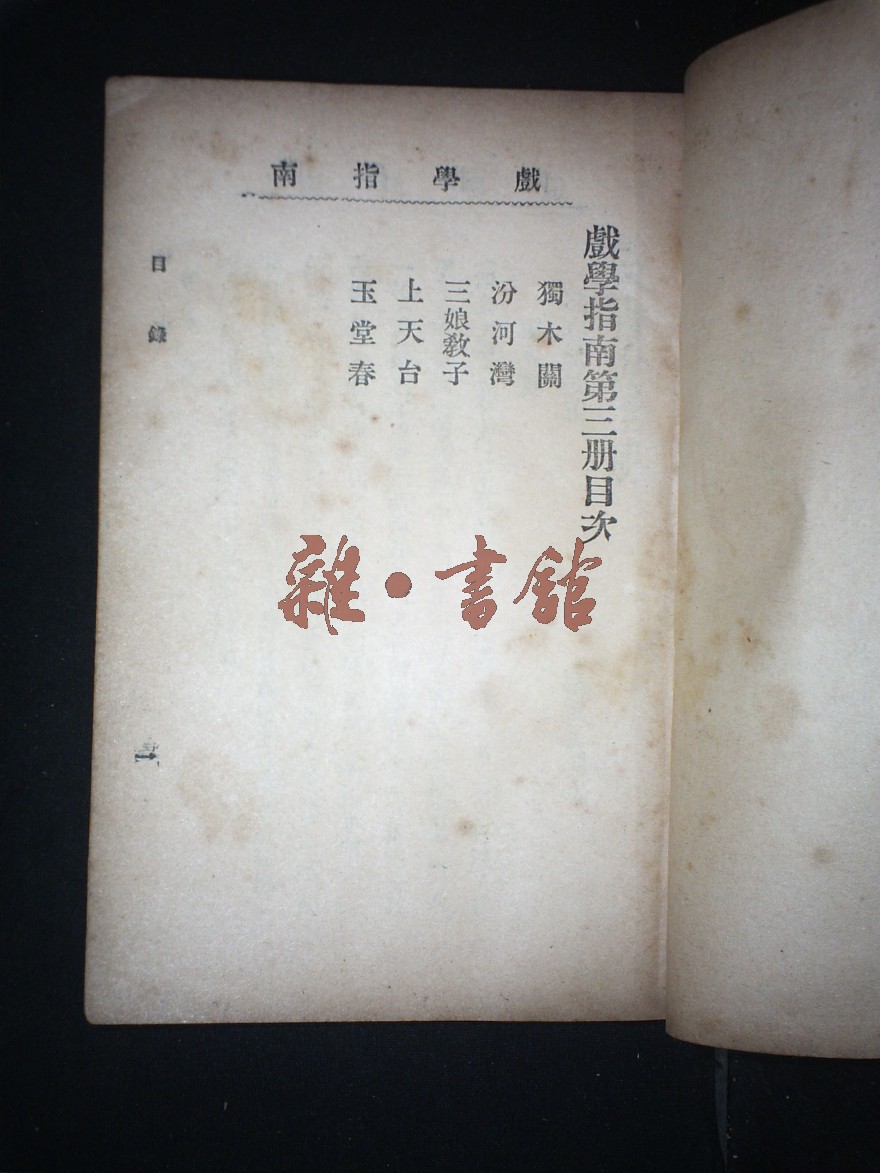 戲學指南
戲學指南第三册目次
獨木關
汾河灣
三娘教子
上天台
玉堂春
目錄
一
雜・書館